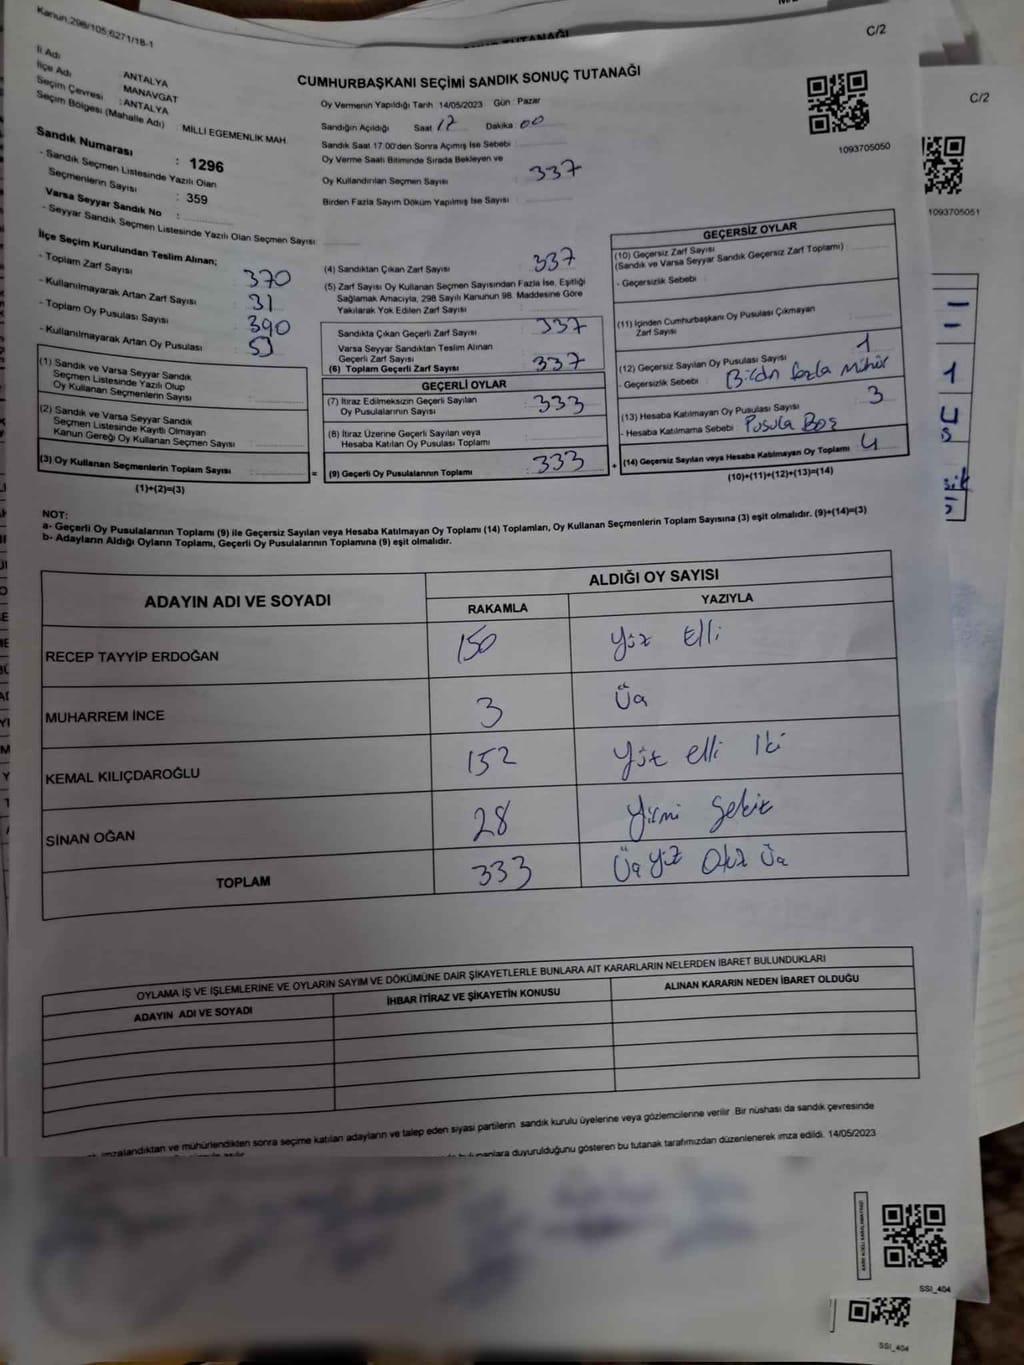 Kanun:298/105;6271/18-1
C/2
İl Adı ANTALYA
İlçe Adı MANAVGAT
Seçim Çevresi : ANTALYA
Seçim Bölgesi (Mahalle Adı) : MİLLİ EGEMENLİK MAH.
CUMHURBAŞKANI SEÇİMİ SANDIK SONUÇ TUTANAĞI
Oy Vermenin Yapıldığı Tarih 14/05/2023 Gün : Pazar
Sandığın Açıldığı Saat 17 Dakika 00
Sandık Saat 17.00'den Sonra Açımış İse Sebebi
Oy Verme Saati Bitiminde Sırada Bekleyen ve
Oy Kullandırılan Seçmen Sayısı 337
Birden Fazla Sayım Döküm Yapılmış İse Sayısı
1093705050
Sandık Numarası : 1296
- Sandık Seçmen Listesinde Yazılı Olan
Seçmenlerin Sayısı : 359
Varsa Seyyar Sandık No :
- Seyyar Sandık Seçmen Listesinde Yazılı Olan Seçmen Sayısı:
İlçe Seçim Kurulundan Teslim Alınan;
- Toplam Zarf Sayısı 370
- Kullanılmayarak Artan Zarf Sayısı 31
- Toplam Oy Pusulası Sayısı 390
- Kullanılmayarak Artan Oy Pusulası
(1) Sandık ve Varsa Seyyar Sandık
Seçmen Listesinde Yazılı Olup
Oy Kullanan Seçmenlerin Sayısı
(2) Sandık ve Varsa Seyyar Sandık
Seçmen Listesinde Kayıtlı Olmayan
Kanun Gereği Oy Kullanan Seçmen Sayısı
(3) Oy Kullanan Seçmenlerin Toplam Sayısı
(1)+(2)=(3)
(4) Sandıktan Çıkan Zarf Sayısı 337
(5) Zarf Sayısı Oy Kullanan Seçmen Sayısından Fazla İse, Eşitliği
Sağlamak Amacıyla, 298 Sayılı Kanunun 98. Maddesine Göre
Yakılarak Yok Edilen Zarf Sayısı
Sandıkta Çıkan Geçerli Zarf Sayısı 337
Varsa Seyyar Sandıktan Teslim Alınan
Geçerli Zarf Sayısı
(6) Toplam Geçerli Zarf Sayısı 337
GEÇERLİ OYLAR
(7) İtiraz Edilmeksizin Geçerli Sayılan
Oy Pusulalarının Sayısı 333
(8) İtiraz Üzerine Geçerli Sayılan veya
Hesaba Katılan Oy Pusulası Toplamı
= (9) Geçerli Oy Pusulalarının Toplamı 333 +
GEÇERSİZ OYLAR
(10) Geçersiz Zarf Sayısı
(Sandık ve Varsa Seyyar Sandık Geçersiz Zarf Toplamı)
- Geçersizlik Sebebi
(11) İçinden Cumhurbaşkanı Oy Pusulası Çıkmayan
Zarf Sayısı
(12) Geçersiz Sayılan Oy Pusulası Sayısı 1
- Geçersizlik Sebebi : Birden fazla mühür
(13) Hesaba Katılmayan Oy Pusulası Sayısı 3
- Hesaba Katılmama Sebebi : Pusula Boş
(14) Geçersiz Sayılan veya Hesaba Katılmayan Oy Toplamı 4
(10)+(11)+(12)+(13)=(14)
NOT:
a- Geçerli Oy Pusulalarının Toplamı (9) ile Geçersiz Sayılan veya Hesaba Katılmayan Oy Toplamı (14) Toplamları, Oy Kullanan Seçmenlerin Toplam Sayısına (3) eşit olmalıdır. (9)+(14)=(3)
b- Adayların Aldığı Oyların Toplamı, Geçerli Oy Pusulalarının Toplamına (9) eşit olmalıdır.
ADAYIN ADI VE SOYADI
ALDIĞI OY SAYISI
RAKAMLA YAZIYLA
RECEP TAYYİP ERDOĞAN 150 Yüz Elli
MUHARREM İNCE 3 Üç
KEMAL KILIÇDAROĞLU 152 Yüz elli iki
SİNAN OĞAN 28 Yirmi Sekiz
TOPLAM 333 Üç yüz Otuz Üç
OYLAMA İŞ VE İŞLEMLERİNE VE OYLARIN SAYIM VE DÖKÜMÜNE DAİR ŞİKAYETLERLE BUNLARA AİT KARARLARIN NELERDEN İBARET BULUNDUKLARI
ADAYIN ADI VE SOYADI İHBAR İTİRAZ VE ŞİKAYETİN KONUSU ALINAN KARARIN NEDEN İBARET OLDUĞU
imzalandıktan ve mühürlendikten sonra seçime katılan adayların ve talep eden siyasi partilerin sandık kurulu üyelerine veya gözlemcilerine verilir Bir nüshası da sandık çevresinde
duyurulduğunu gösteren bu tutanak tarafımızdan düzenlenerek imza edildi. 14/05/2023
SSI_404
C/2
1093705051
1
4
SSI_404